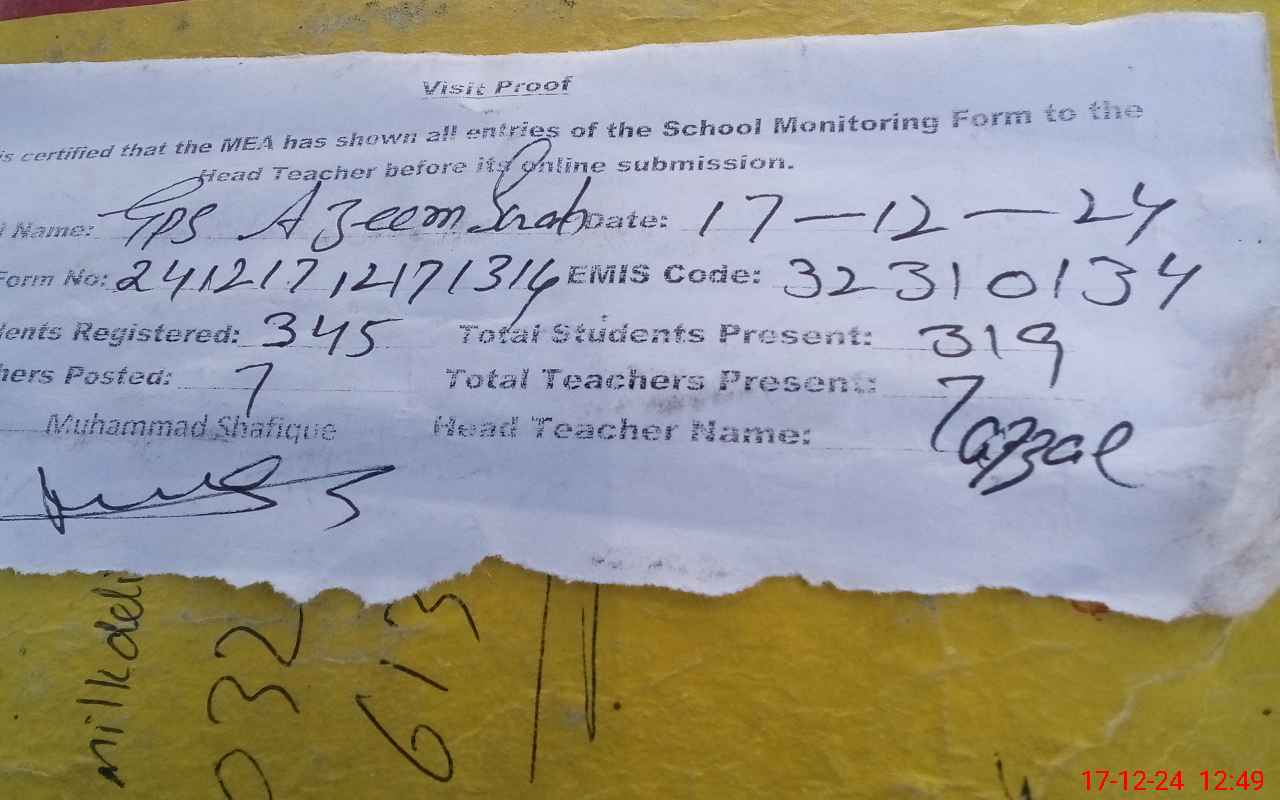 Visit Proof
is certified that the MEA has shown all entries of the School Monitoring Form to the
Head Teacher before its online submission.
Name: GPS Azeem Shah Date: 17-12-24
Form No: 24121712171314 EMIS Code: 32310134
ents Registered: 345 Total Students Present: 319
hers Posted: 7 Total Teachers Present: 7
Muhammad Shafique Head Teacher Name: Afzal
milkdeli
032
613
17-12-24 12:49